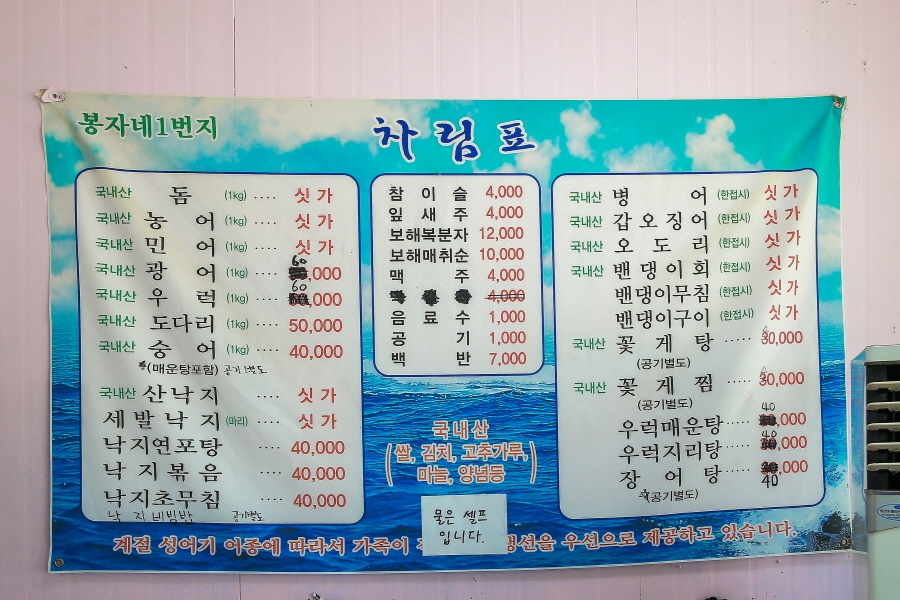 봉자네1번지
차림표
국내산 돔 (1kg) ···· 싯가
국내산 농어 (1kg) ···· 싯가
국내산 민어 (1kg) ···· 싯가
국내산 광어 (1kg) ···· 60,000
국내산 우럭 (1kg) ···· 60,000
국내산 도다리 (1kg) ···· 50,000
국내산 숭어 (1kg) ···· 40,000
*(매운탕포함) 공기별도
국내산 산낙지 ···· 싯가
세발낙지 (마리) ···· 싯가
낙지연포탕 ···· 40,000
낙지볶음 ···· 40,000
낙지초무침 ···· 40,000
낙지비빔밥 공기별도
참이슬 4,000
잎새주 4,000
보해복분자 12,000
보해매취순 10,000
맥주 4,000
4,000
음료수 1,000
공기 1,000
백반 7,000
국내산
(쌀, 김치, 고추가루,
마늘, 양념등)
물은 셀프
입니다.
국내산 병어 (한접시) 싯가
국내산 갑오징어 (한접시) 싯가
국내산 오도리 (한접시) 싯가
국내산 밴댕이회 (한접시) 싯가
밴댕이무침 (한접시) 싯가
밴댕이구이 (한접시) 싯가
국내산 꽃게탕 ····· 30,000
(공기별도)
국내산 꽃게찜 ····· 30,000
(공기별도)
우럭매운탕 ····· 40,000
우럭지리탕 ····· 40,000
장어탕 ····· 40,000
*(공기별도)
계절 성어기 어종에 따라서 가족이 생선을 우선으로 제공하고 있습니다.